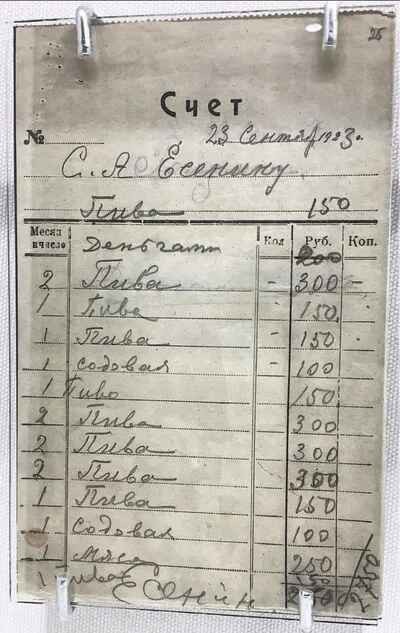 26
Счет
№ 23 Сентяб 1923 г.
С. А Есенину
Пива 150
Месяц и число Кол Руб. Коп.
Деньгами 200
2 Пива - 300 -
1 Пива - 150
1 Пива - 150
1 содовая - 100
1 Пиво 150
2 Пива 300
2 Пива 300
2 Пива 300
1 Пива 150
1 Содовая 100
1 Мяса 250
1 150